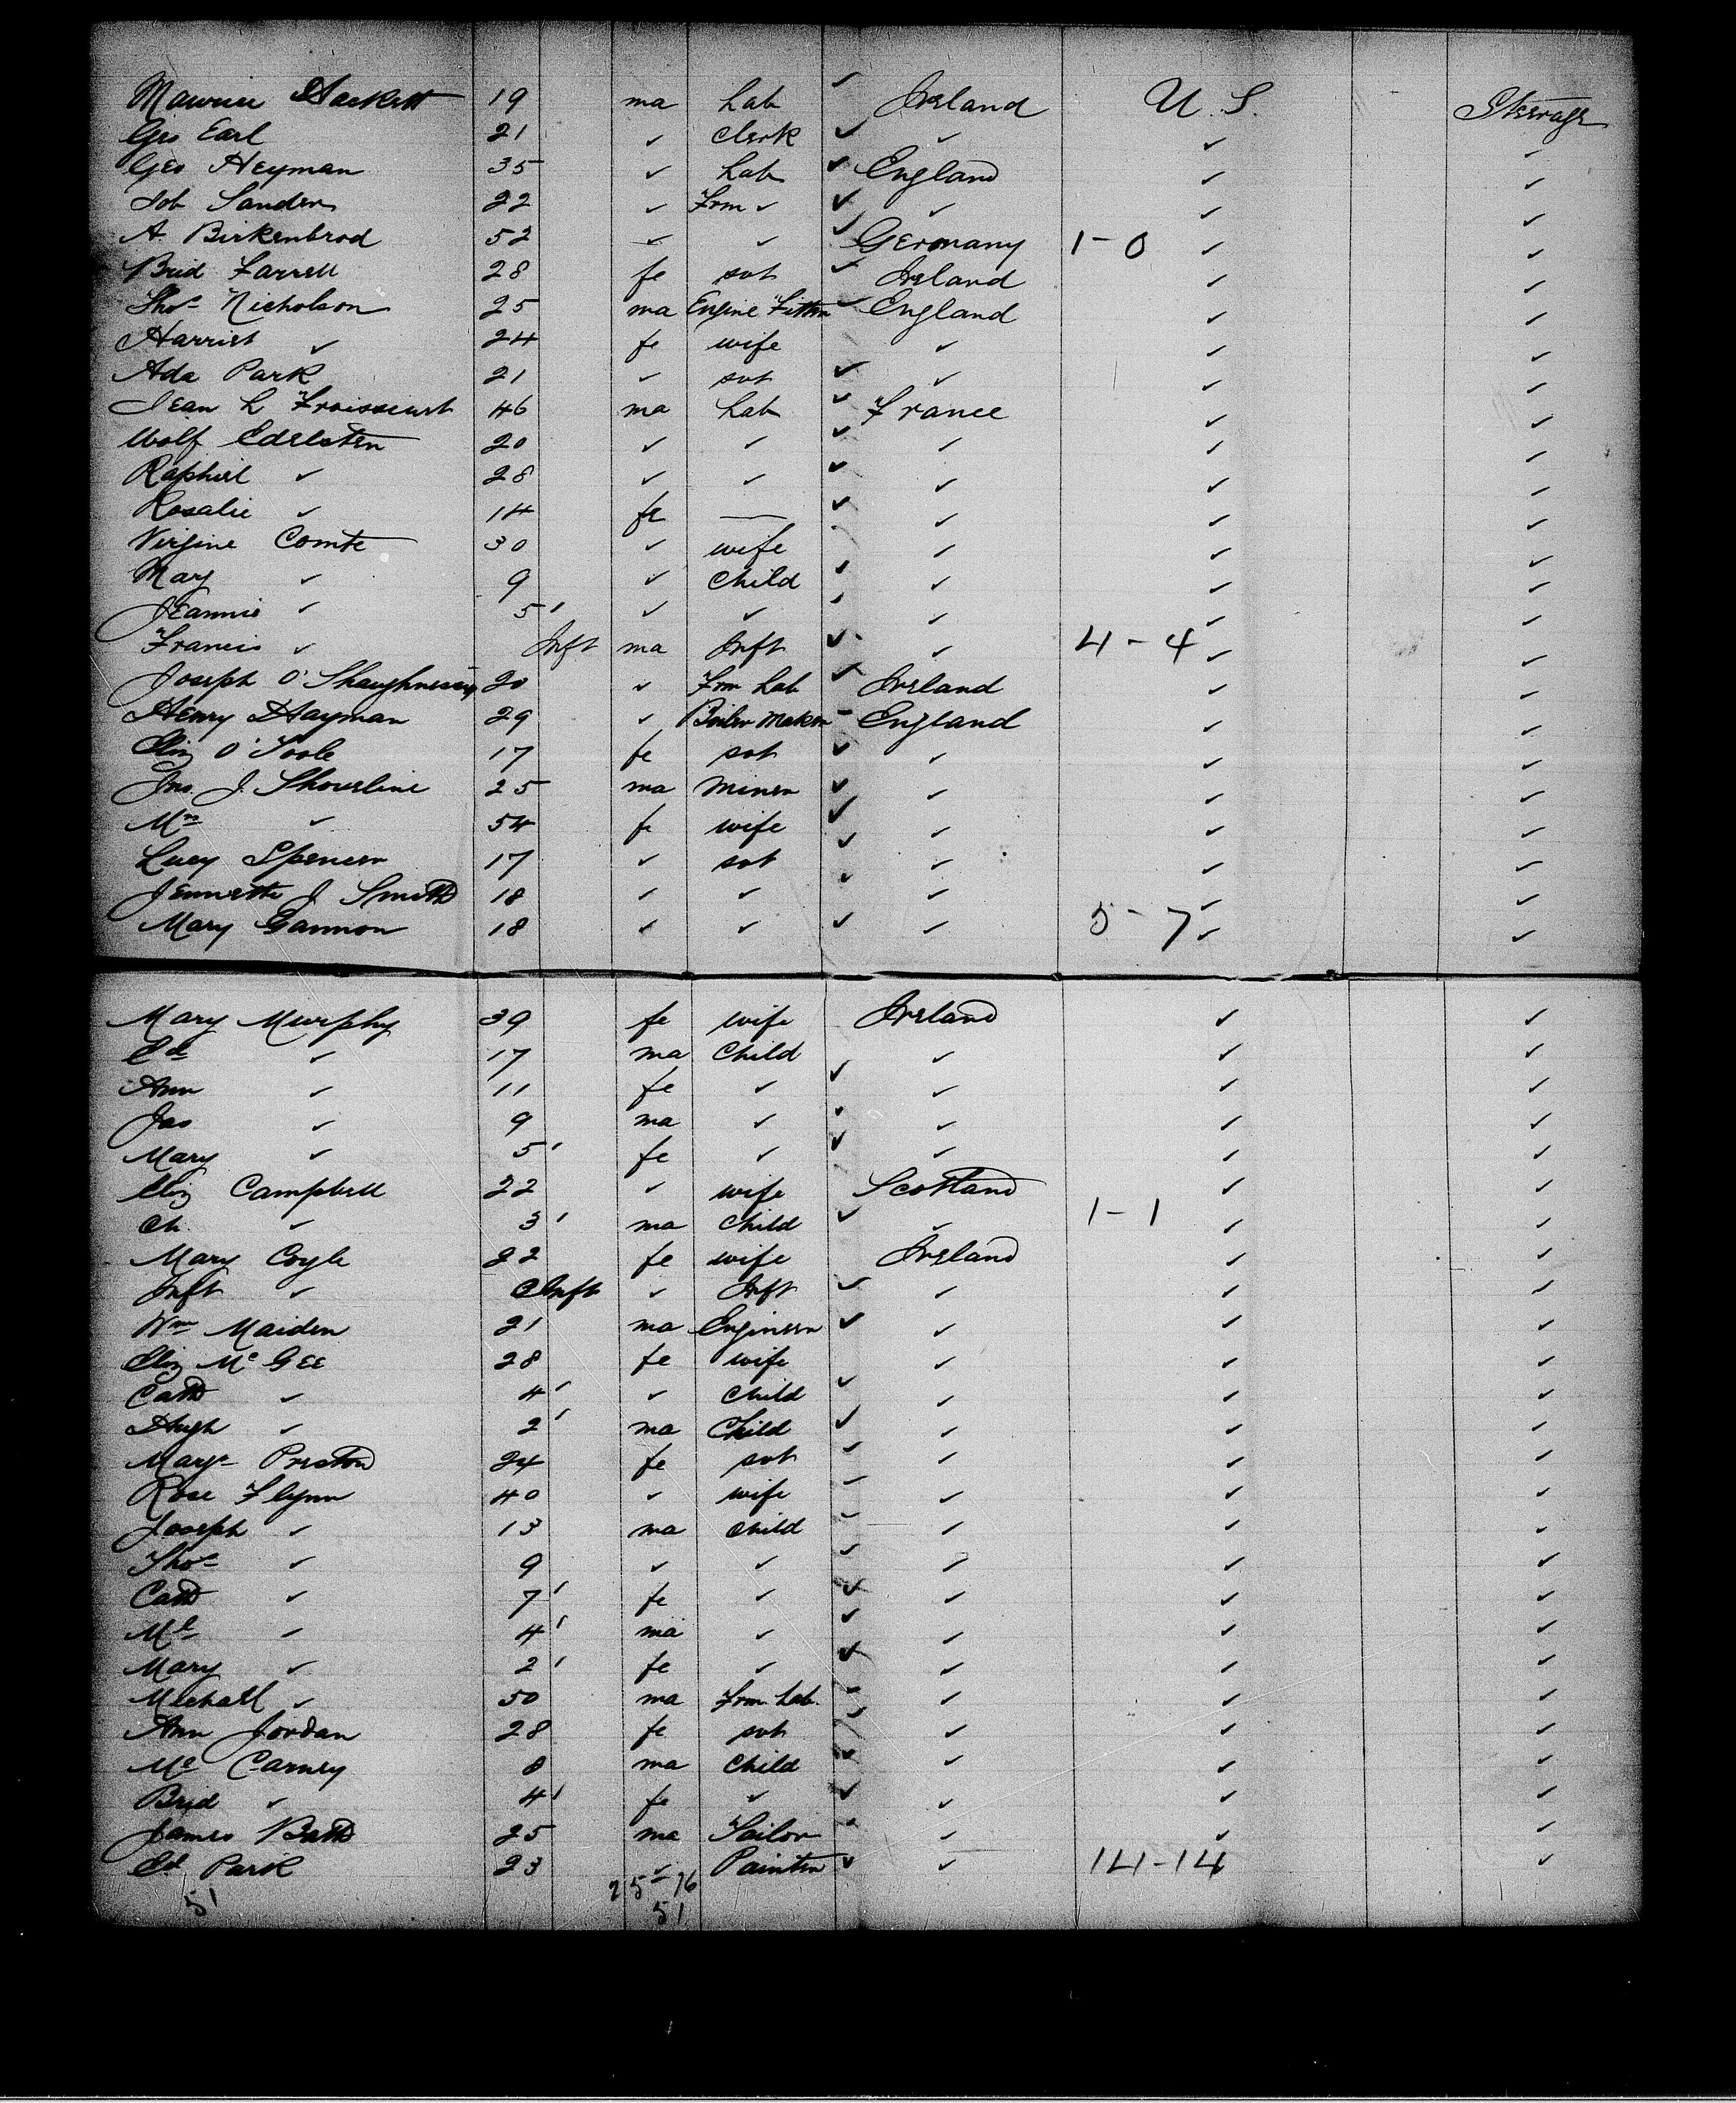 Maurice Hackett 19 ma Lab ✓ Ireland U.S. Steerage
Geo Earl 21 ✓ Clerk ✓ ✓ ✓ ✓
Geo Heyman 35 ✓ Lab ✓ England ✓ ✓
Job Sanders 22 ✓ Frm ✓ ✓ ✓ ✓ ✓
A. Birkenbrod 52 ✓ ✓ ✓ Germany 1-0 ✓ ✓
Brid Farrell 28 fe svt ✓ Ireland ✓ ✓
Thos Nicholson 25 ma Engine Fitter ✓ England ✓ ✓
Harriet ✓ 24 fe wife ✓ ✓ ✓
Ada Park 21 ✓ svt ✓ ✓ ✓ ✓
Jean L 46 ma Lab ✓ France ✓ ✓
Wolf Edelsten 20 ✓ ✓ ✓ ✓ ✓ ✓
Raphael ✓ 28 ✓ ✓ ✓ ✓ ✓ ✓
Rosalie ✓ 14 fe — ✓ ✓ ✓ ✓
Virgine Comte 30 ✓ wife ✓ ✓ ✓
Mary ✓ 9 ✓ Child ✓ ✓ ✓ ✓
Jeannie ✓ 5' ✓ ✓ ✓ ✓ ✓ ✓
Francis ✓ Inft ma Inft ✓ ✓ 4-4 ✓ ✓
Joseph O'Shaughnessy 20 ✓ Frm Lab ✓ Ireland ✓ ✓
Henry Hayman 29 ✓ Boiler Maker - England ✓ ✓
Eliz O'Toole 17 fe svt ✓ ✓ ✓ ✓
Jno. J. Shourline 25 ma Miner ✓ ✓ ✓ ✓
Mrs ✓ 54 fe wife ✓ ✓ ✓ ✓
Lucy Spencer 17 ✓ svt ✓ ✓ ✓ ✓
Jennette J Smith 18 ✓ ✓ ✓ ✓ ✓ ✓
Mary Gannon 18 ✓ ✓ ✓ ✓ 5-7 ✓ ✓
Mary Murphy 39 fe wife Ireland ✓ ✓
Ed ✓ 17 ma Child ✓ ✓ ✓
Ann ✓ 11 fe ✓ ✓ ✓ ✓ ✓
Jas ✓ 9 ma ✓ ✓ ✓ ✓ ✓
Mary ✓ 5' fe ✓ ✓ ✓ ✓ ✓
Eliz Campbell 22 ✓ wife Scotland ✓ ✓
Ch. ✓ 3' ma Child ✓ ✓ 1-1 ✓ ✓
Mary Coyle 22 fe wife Ireland ✓ ✓
Inft ✓ Inft ✓ Inft ✓ ✓ ✓ ✓
Wm Maiden 21 ma Engineer ✓ ✓ ✓ ✓
Eliz McGee 28 fe wife ✓ ✓ ✓
Cath ✓ 4' ✓ Child ✓ ✓ ✓ ✓
Hugh ✓ 2' ma Child ✓ ✓ ✓ ✓
Margt Preston 24 fe svt ✓ ✓ ✓ ✓
Rose Flynn 40 ✓ wife ✓ ✓ ✓ ✓
Joseph ✓ 13 ma Child ✓ ✓ ✓ ✓
Thos ✓ 9 ✓ ✓ ✓ ✓ ✓ ✓
Cath ✓ 7' fe ✓ ✓ ✓ ✓ ✓
Ml ✓ 4' ma ✓ ✓ ✓ ✓ ✓
Mary ✓ 2' fe ✓ ✓ ✓ ✓ ✓
Michael ✓ 50 ma Frm Lab. ✓ ✓ ✓ ✓
Ann Jordan 28 fe svt ✓ ✓ ✓ ✓
Carney 8 ma Child ✓ ✓ ✓ ✓
Brid ✓ 4' fe ✓ ✓ ✓ ✓ ✓
James 25 ma ✓ ✓ ✓ ✓
Ed. Park 23 ✓ Painter ✓ ✓ 14-14 ✓
51 51